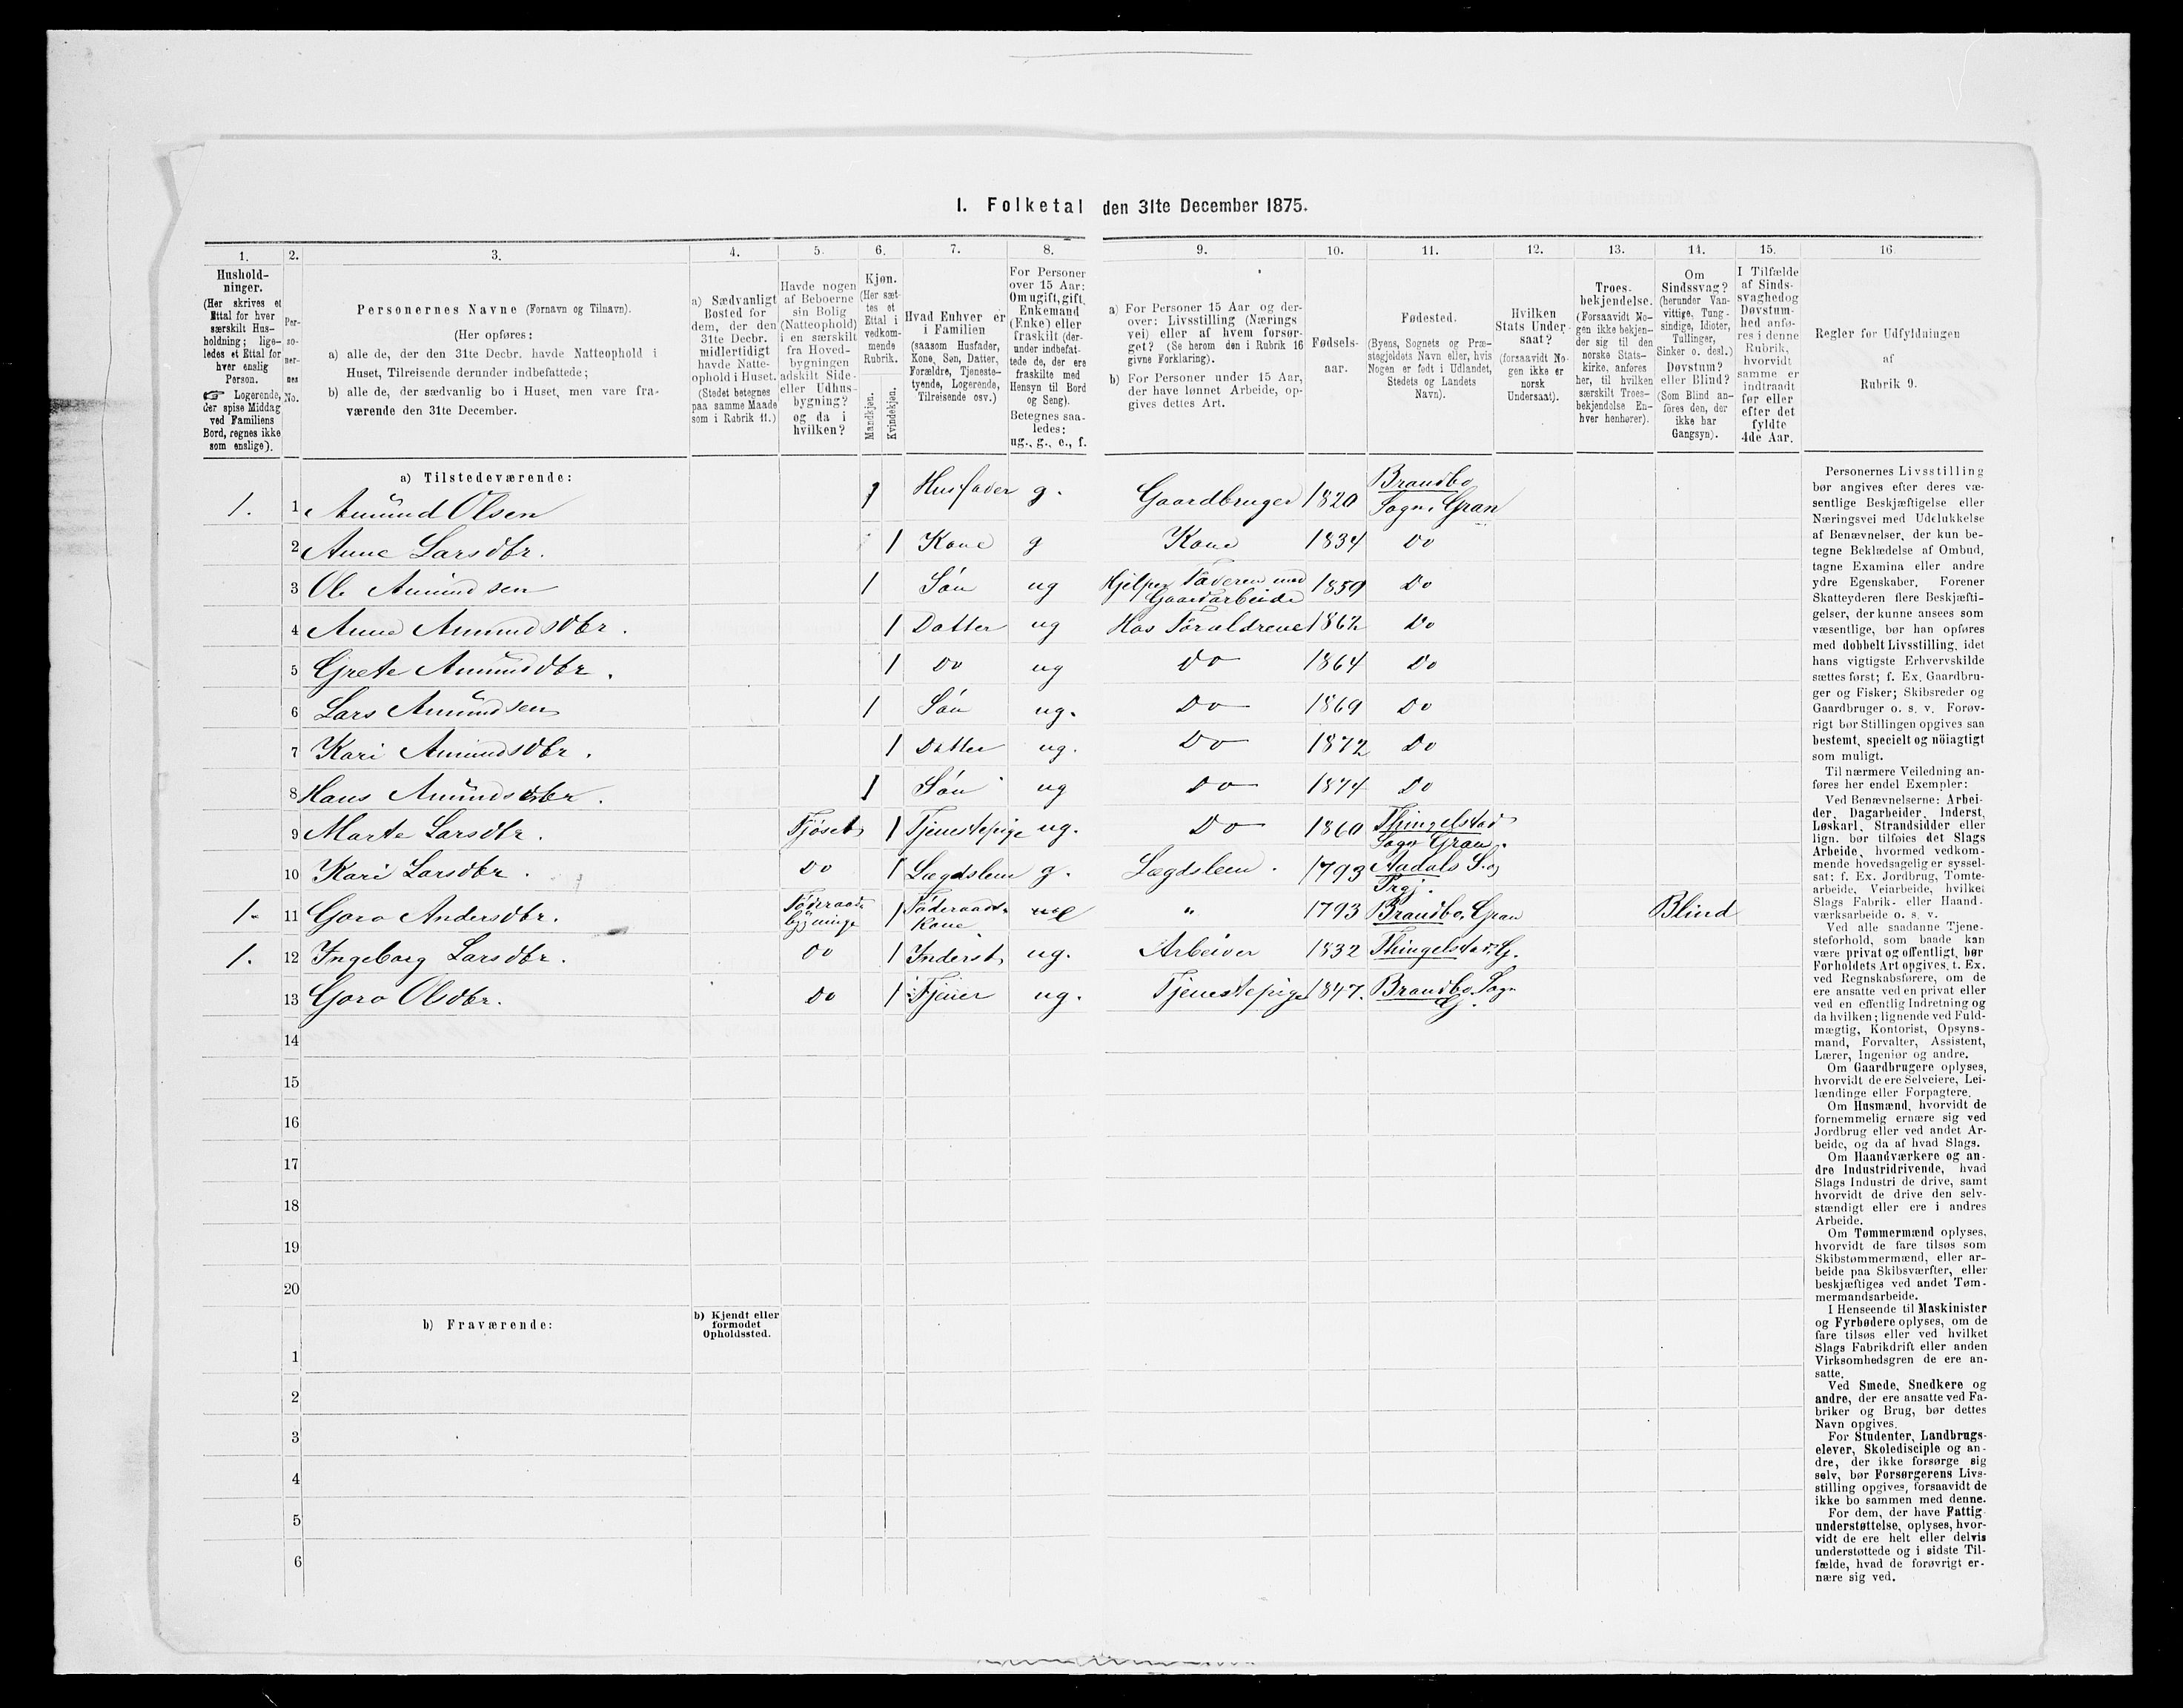 I. Folketal den 31te December 1875.
1. 2. 3. 4. 5. 6. 7. 8. 9. 10. 11. 12. 13. 14. 15. 16
Hushold-
ninger.
(Her skrives et
Ettal for hver
særskilt Hus-
holdning; lige-
ledes et Ettal for
hver enslig
Person.
☞ Logerende,
der spise Middag
ved Familiens
Bord, regnes ikke
som enslige).
Per-
so-
ner-
nes
No.
Personernes Navne (Fornavn og Tilnavn).
(Her opføres:
a) alle de, der den 31te Decbr. havde Natteophold i
Huset, Tilreisende derunder indbefattede;
b) alle de, der sædvanlig bo i Huset, men vare fra-
værende den 31te December.
a) Sædvanligt
Bosted for
dem, der den
31te Decbr.
midlertidigt
havde Natte-
ophold i Huset.
(Stedet betegnes
paa samme Maade
som i Rubrik 11.)
Havde nogen
af Beboerne
sin Bolig
(Natteophold)
i en særskilt
fra Hoved-
bygningen
adskilt Side-
eller Udhus-
bygning?
og da i
hvilken?
Kjøn.
(Her sæt-
tes et
Ettal i
vedkom-
mende
Rubrik.
Mandkjøn.
Kvindekjøn.
Hvad Enhver er
i Familien
(saasom Husfader,
Kone, Søn, Datter,
Forældre, Tjeneste-
tyende, Logerende,
Tilreisende osv.)
For Personer
over 15 Aar:
Om ugift, gift,
Enkemand
(Enke) eller
fraskilt (der-
under indbefat-
tede de, der ere
fraskilte med
Hensyn til Bord
og Seng).
Betegnes saa-
ledes:
ug., g., e., f.
a) For Personer 15 Aar og der-
over: Livsstilling (Nærings
vei) eller af hvem forsør-
get? (Se herom den i Rubrik 16
givne Forklaring).
b) For Personer under 15 Aar,
der have lønnet Arbeide, op-
gives dettes Art.
Fødsels-
aar.
Fødested.
(Byens, Sognets og Præ-
stegjeldets Navn eller, hvis
Nogen er født i Udlandet,
Stedets og Landets
Navn).
Hvilken
Stats Under-
saat?
(forsaavidt No-
gen ikke er
norsk
Undersaat).
Troes-
bekjendelse.
(Forsaavidt No-
gen ikke bekjen-
der sig til den
norske Stats-
kirke, anføres
her, til hvilken
særskilt Troes-
bekjendelse En-
hver henhører).
Om
Sindssvag?
(herunder Van-
vittige, Tung-
sindige, Idioter,
Tullinger,
Sinker o. desl.)
Døvstum?
eller Blind?
(Som Blind an-
føres den, der
ikke har
Gangsyn).
I Tilfælde
af Sinds-
svaghedog
Døvstum-
hed anfø-
res i denne
Rubrik,
hvorvidt
samme er
indtraadt
før eller
efter det
fyldte
4de Aar.
Regler for Udfyldningen
af
Rubrik 9.
a) Tilstedeværende:
1. 1 Amund Olsen 1 Husfader g. Gaardbruger 1820 Brandbo Sogn, Gran
2 Anne Larsdtr. 1 Kone g Kone 1834 Do
3 Ole Amundsen 1 Søn ug Hjelper Faderen med Gaardarbeide 1859 Do
4 Anne Amundsdtr. 1 Datter ug Hos Forældrene 1862 Do
5 Grete Amundsdtr. 1 Do ug Do 1864 Do
6 Lars Amundsen 1 Søn ug. Do 1869 Do
7 Kari Amundsdtr. 1 Datter ug. Do 1872 Do
8 Hans Amunds 1 Søn ug Do 1874 Do
9 Marte Larsdtr. Fjøset 1 Tjenestepige ug. Do 1860 Thingelstad Sogn Gran.
10 Kari Larsdtr. Do 1 Lægdslem g. Lægdslem. 1793 Aadals S. og Prgj.
1. 11 Goro Andersdtr. Føderaads bygninge 1 Føderaads Kone e " 1793 Brandbo, Gran Blind
1. 12 Ingeborg Larsdtr. Do 1 Inderst ug. Arbeider 1832 Thingelstad G.
13 Goro Olsdtr. Do 1 Tjener ug. Tjenestepige 1847. Brandbo Sogn G.
14
15
16
17
18
19
20
b) Fraværende:
b) Kjendt eller
formodet
Opholdssted.
1
2
3
4
5
6
Personernes Livsstilling
bør angives efter deres væ-
sentlige Beskjæftigelse eller
Næringsvei med Udelukkelse
af Benævnelser, der kun be-
tegne Beklædelse af Ombud,
tagne Examina eller andre
ydre Egenskaber. Forener
Skatteyderen flere Beskjæfti-
gelser, der kunne ansees som
væsentlige, bør han opføres
med dobbelt Livsstilling, idet
hans vigtigste Erhvervskilde
sættes først; f. Ex. Gaardbru-
ger og Fisker; Skibsreder og
Gaardbruger o. s. v. Forøv-
rigt bør Stillingen opgives saa
bestemt, specielt og nöiagtigt
som muligt.
Til nærmere Veiledning an-
føres her endel Exempler:
Ved Benævnelserne: Arbei-
der, Dagarbeider, Inderst,
Løskarl, Strandsidder eller
lign. bør tilføies det Slags
Arbeide, hvormed vedkom-
mende hovedsagelig er syssel-
sat; f. Ex. Jordbrug, Tomte-
arbeide, Veiarbeide, hvilket
Slags Fabrik- eller Haand-
værksarbeide o. s. v.
Ved alle saadanne Tjene-
steforhold, som baade kan
være privat og offentligt, bør
Forholdets Art opgives, t. Ex.
ved Regnskabsførere, om de
ere ansatte ved en privat eller
ved en offentlig Indretning og
da hvilken; lignende ved Fuld-
mægtig, Kontorist, Opsyns-
mand, Forvalter, Assistent,
Lærer, Ingeniør og andre.
Om Gaardbrugere oplyses,
hvorvidt de ere Selveiere, Lei-
lændinge eller Forpagtere.
Om Husmænd, hvorvidt de
fornemmelig ernære sig ved
Jordbrug eller ved andet Ar-
beide, og da af hvad Slags.
Om Haandværkere og an-
dre Industridrivende, hvad
Slags Industri de drive, samt
hvorvidt de drive den selv-
stændigt eller ere i andres
Arbeide.
Om Tømmermænd oplyses,
hvorvidt de fare tilsøs som
Skibstømmermænd, eller ar-
beide paa Skibsværfter, eller
beskjæftiges ved andet Tøm-
mermandsarbeide.
I Henseende til Maskinister
og Fyrbødere oplyses, om de
fare tilsøs eller ved hvilket
Slags Fabrikdrift eller anden
Virksomhedsgren de ere an-
satte.
Ved Smede, Snedkere og
andre, der ere ansatte ved Fa-
briker og Brug, bør dettes
Navn opgives.
For Studenter, Landbrugs-
elever, Skoledisciple og an-
dre, der ikke forsørge sig
selv, bør Forsørgerens Livs-
stilling opgives, forsaavidt de
ikke bo sammen med denne.
For dem, der have Fattig-
understøttelse, oplyses, hvor-
vidt de ere helt eller delvis
understøttede og i sidste Til-
fælde, hvad de forøvrigt er-
nære sig ved.